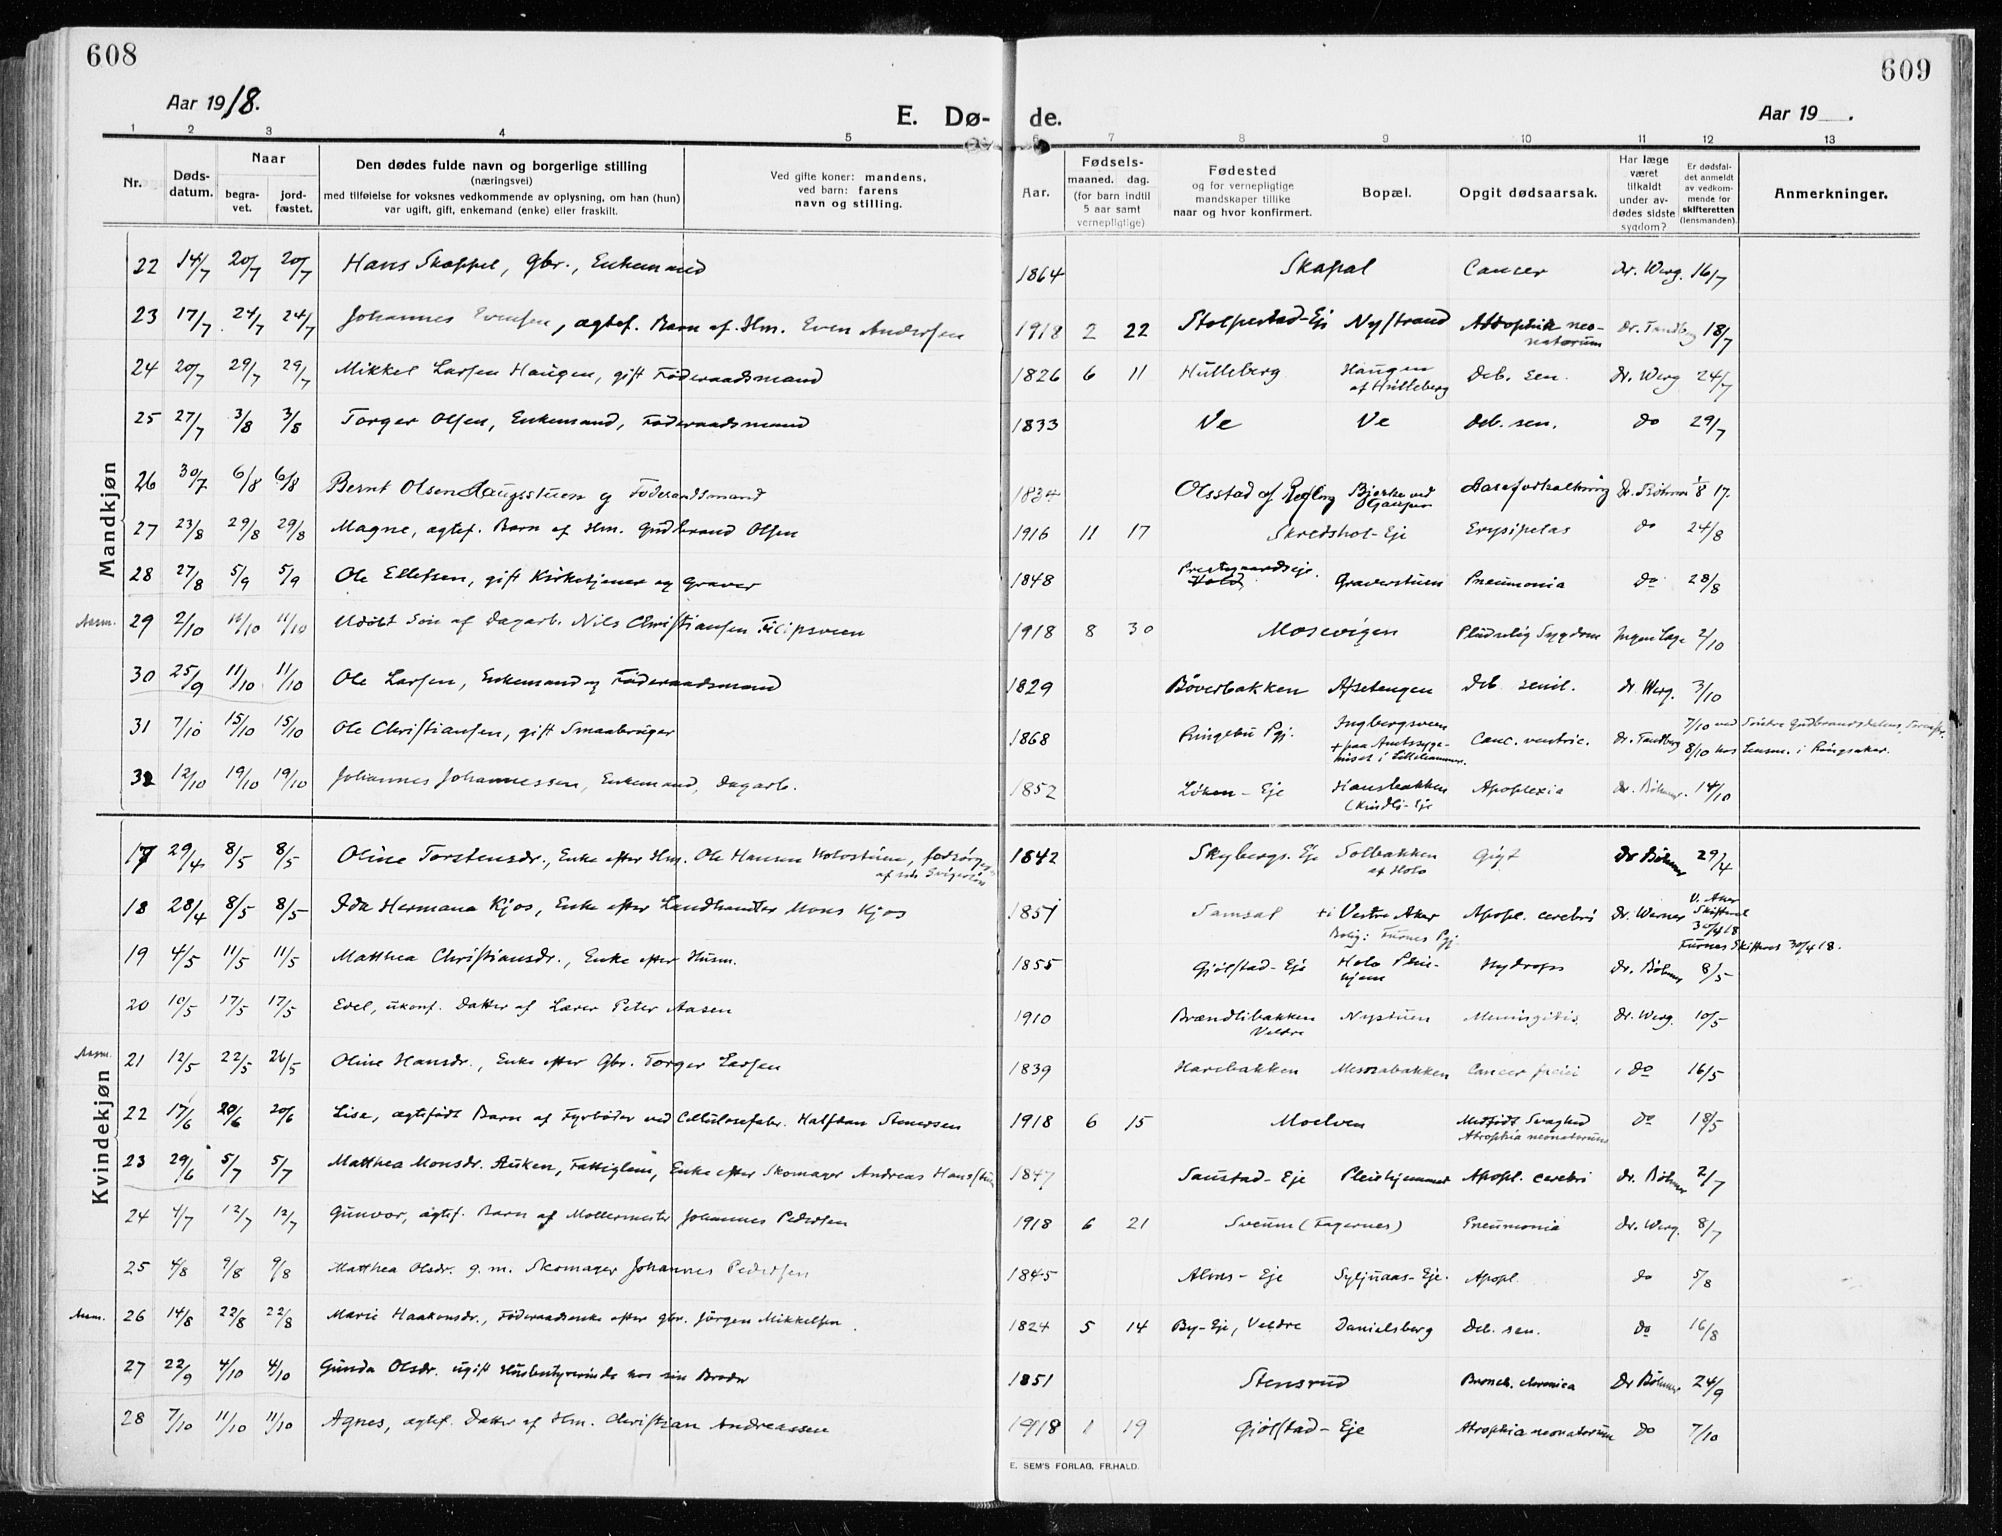 608
609
Aar 1918.
E. Dø-
de.
Aar 19 .
1 2 3 4 5 6 7 8 9 10 11 12 13
Nr. Døds-datum. Naar begra-vet. jord-fæstet. Den dødes fulde navn og borgerlige stilling (næringsvei) med tilføielse for voksnes vedkommende av oplysning, om han (hun) var ugift, gift, enkemand (enke) eller fraskilt. Ved gifte koner: mandens, ved barn: farens navn og stilling. Aar. Fødsels- maaned. dag. (for barn indtil 5 aar samt vernepligtige) Fødested og for vernepligtige mandskaper tillike naar og hvor konfirmert. Bopæl. Opgit dødsaarsak. Har læge været tilkaldt under av-dødes sidste sygdom? Er dødsfal-det anmeldt av vedkom-mende for skifteretten (lensmanden). Anmerkninger.
Mandkjøn
22 14/7 20/7 20/7 Hans Skappel, gbr., Enkemand 1864 Skapal Cancer Dr. Werg. 16/7
23 17/7 24/7 24/7 Johannes Evensen, ægtef. Barn af Hm. Even Andersen 1918 2 22 Stolpestad-Eje Nystrand Attophia neo-natorum Dr. Tandberg 18/7
24 20/7 29/7 29/7 Mikkel Larsen Haugen, gift Føderaadsmand 1826 6 11 Hulleberg Haugen af Hulleberg Deb. sen. Dr. Werg 24/7
25 27/7 3/8 3/8 Torger Olsen, Enkemand, Føderaadsmand 1833 Ve Ve deb. sen. do 29/7
26 30/7 6/8 6/8 Bernt Olsen Haugsstuen g Føderaadsmand 1834 Olsstad af Bjerke ved Aareforkalkning Dr. Bøhmer 1/8 17.
27 23/8 29/8 29/8 Magne, ægtef. Barn af Hm. Gudbrand Olsen 1916 11 17 Skredshol-Eje Erysipelas do 24/8
28 27/8 5/9 5/9 Ole Ellefsen, gift Kirketjener og graver 1848 Prestegaardseje. Graverstuen Pneumonia Do 28/8
Anm. 29 2/10 11/10 11/10 Udøbt Søn af Dagarb. Nils Christiansen Filipsveen 1918 8 30 Mosevigen Pludselig Sygdom Ingen Læge 2/10
30 25/9 11/10 11/10 Ole Larsen, Enkemand og Føderaadsmand 1829 Bøverbakken Afsetengen Deb. senil. Dr. Werg. 3/10
31 7/10 15/10 15/10 Ole Christiansen, gift Smaabruger 1868 Ringebu Pgj. Ingbergsveen + paa Amtssyge-huset i Lillehammer. Canc. ventric. Dr. Tandberg 7/10 ved Søndre Gudbrandsdalens 8/10 hos Lensm. i Ringsaker.
32 12/10 19/10 19/10 Johannes Johannessen, Enkemand, Dagarb. 1852 Løken-Eje Hansbakken (Kindli-Eje Apoplexia Dr. Bøhmer. 14/10
Kvindekjøn
17 29/4 8/5 8/5 Oline Torstensdr., Enke efter Hm. Ole Hansen Holostuen, forsørges af sin Svigersøn 1842 Skybergs. Eje Solbakken af Holo Gigt Dr Bøhmer 29/4
18 28/4 8/5 8/5 Ida Hermana Kjos, Enke efter Landhandler Mons Kjos 1851 Samsal Vestre Aker Bolig: Furnes Pgj. Apopl. cerebri Dr. Werner V. Aker Skifteret 30/4 18 Furnes Skifteret 30/4 18.
19 4/5 11/5 11/5 Matthea Christiansdr., Enke efter Husm. 1855 Gjølstad-Eje Holo Pleie-hjem Hydrops Dr. Bøhmer 8/5
20 10/5 17/5 17/5 Edel, ukonf. Datter af Lærer Peter Aasen 1910 Brændlibakken Veldre Nystuen Meningitis Dr. Werg. 10/5
Anm. 21 12/5 22/5 26/5 Oline Hansdr., Enke efter Gbr. Torger Larsen 1839 Harebakken Messabakken Cancer do 16/5
22 17/6 20/6 20/6 Lise, ægtefødt Barn af Fyrbøder ved Cellulosefabr. Halfdan Stenersen 1918 6 15 Moelven Medfødt Svaghed Atrophia neonatorum Do 18/5
23 29/6 5/7 5/7 Matthea Monsdr. Auken, Fattiglem, Enke efter Skomager Andreas Hans 1847 Saustad-Eje Pleiehjemmet Apopl. cerebri Dr. Bøhmer 2/7
24 4/7 12/7 12/7 Gunvor, ægtef. Barn af Møllermester Johannes Pedersen 1918 6 21 Sveum (Fagernes) Pneumonia Dr. Werg. 8/7
25 4/8 9/8 9/8 Matthea Olsdr. g. m. Skomager Johannes Pedersen 1845 Alms-Eje Syljuaas-Eje. Apopl. do 5/8
Anm. 26 14/8 22/8 22/8 Marie Haakensdr., Føderaadsenke efter gbr. Jørgen Mikkelsen 1824 5 14 By-Eje, Veldre Danielsberg Deb. sen. do 16/8
27 22/9 4/10 4/10 Gunda Olsdr. ugift Husbestyrerinde hos sin Broder 1851 Stensrud Bronch. chronica Dr Bøhmer 24/9
28 7/10 11/10 11/10 Agnes, ægtef. Datter af Hm. Christian Andreassen 1918 1 19 Gjølstad-Eje Atrophia neonatorum do 7/10
E. SEM'S FORLAG, FR.HALD.